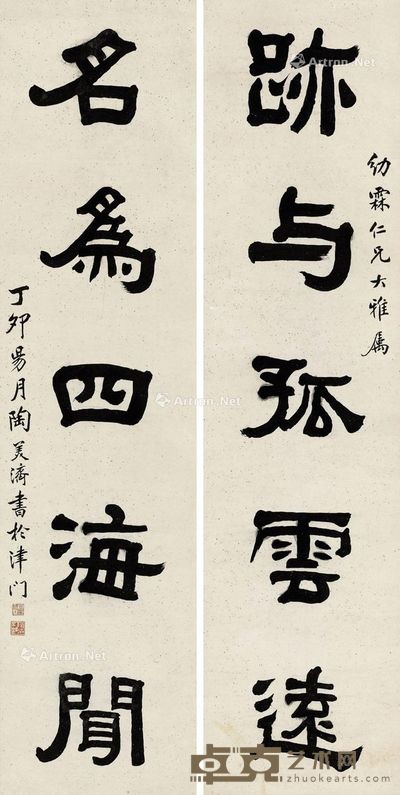 跡与孤雲遠
幼霖仁兄大雅属
名為四海聞
丁卯昜月陶美濟書於津门
Artron.Net
Artron.Net
Artron.Net
Artron.Net
卓克艺术网
www.zhuokearts.com